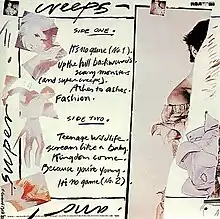 creeps
SIDE ONE.
It's no game (No. 1).
Up the hill backwards
scary monsters
(and super creeps).
Ashes to ashes.
Fashion.
SIDE TWO.
Teenage Wildlife.
scream like a Baby.
Kingdom come.
Because you're young.
It's no game (No. 2)
super